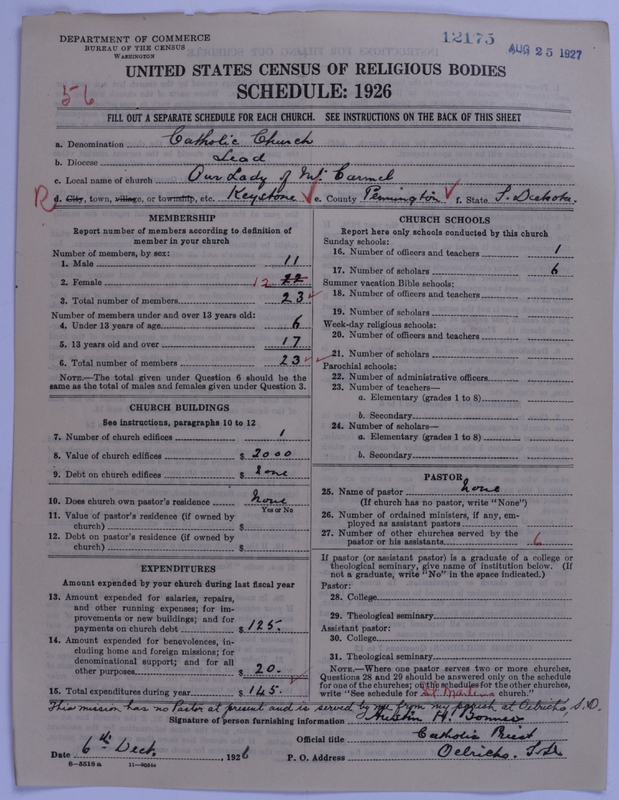 DEPARTMENT OF COMMERCE
BUREAU OF THE CENSUS
WASHINGTON
12175
AUG 25 1927
UNITED STATES CENSUS OF RELIGIOUS BODIES
SCHEDULE: 1926
56
FILL OUT A SEPARATE SCHEDULE FOR EACH CHURCH. SEE INSTRUCTIONS ON THE BACK OF THIS SHEET
a. Denomination Catholic Church
b. Diocese Lead
c. Local name of church Our Lady of Mt. Carmel
R d. City, town, village, or township, etc. Keystone e. County Pennington f. State S. Dakota.
MEMBERSHIP
Report number of members according to definition of
member in your church
Number of members, by sex:
1. Male 11
2. Female 12 22
3. Total number of members 23
Number of members under and over 13 years old:
4. Under 13 years of age 6
5. 13 years old and over 17
6. Total number of members 23
NOTE.—The total given under Question 6 should be the
same as the total of males and females given under Question 3.
CHURCH BUILDINGS
See instructions, paragraphs 10 to 12
7. Number of church edifices 1
8. Value of church edifices $ 2000
9. Debt on church edifices $ none
10. Does church own pastor's residence none
Yes or No
11. Value of pastor's residence (if owned by
church) $
12. Debt on pastor's residence (if owned by
church) $
EXPENDITURES
Amount expended by your church during last fiscal year
13. Amount expended for salaries, repairs,
and other running expenses; for im-
provements or new buildings; and for
payments on church debt $ 125.
14. Amount expended for benevolences, in-
cluding home and foreign missions; for
denominational support; and for all
other purposes $ 20.
15. Total expenditures during year $ 145.
CHURCH SCHOOLS
Report here only schools conducted by this church
Sunday schools:
16. Number of officers and teachers 1
17. Number of scholars 6
Summer vacation Bible schools:
18. Number of officers and teachers
19. Number of scholars
Week-day religious schools:
20. Number of officers and teachers
21. Number of scholars
Parochial schools:
22. Number of administrative officers
23. Number of teachers—
a. Elementary (grades 1 to 8)
b. Secondary
24. Number of scholars—
a. Elementary (grades 1 to 8)
b. Secondary
PASTOR
25. Name of pastor none
(If church has no pastor, write "None")
26. Number of ordained ministers, if any, em-
ployed as assistant pastors
27. Number of other churches served by the
pastor or his assistants 6
If pastor (or assistant pastor) is a graduate of a college or
theological seminary, give name of institution below. (If
not a graduate, write "No" in the space indicated.)
Pastor:
28. College
29. Theological seminary
Assistant pastor:
30. College
31. Theological seminary
NOTE.—Where one pastor serves two or more churches,
Questions 28 and 29 should be answered only on the schedule
for one of the churches; on the schedules for the other churches,
write "See schedule for St. Martins church."
This mission has no Pastor at present and is served by me from my parish at Oelrichs, S.D.
Signature of person furnishing information Austin H. Bonner
Official title Catholic Priest
Date 6th Dec. 1926 P. O. Address Oelrichs. S.D.
8—5518a 11—9054a